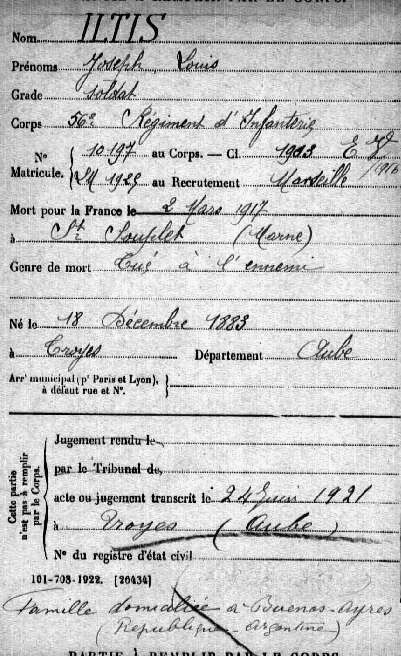 PARTIE À REMPLIR PAR LE CORPS.
Nom ILTIS
Prénoms Joseph Louis
Grade soldat
Corps 56e Régiment d'Infanterie
N° Matricule. { 10197 au Corps. — Cl. 1903 E V
1925 au Recrutement Marseille 1916
Mort pour la France le 2 Mars 1917
à St Souplet (Marne)
Genre de mort Tué à l'ennemi
Né le 18 Décembre 1883
à Troyes Département Aube
Arrt municipal (pr Paris et Lyon), }
à défaut rue et N°.
Cette partie n'est pas à remplir par le Corps.
Jugement rendu le
par le Tribunal de
acte ou jugement transcrit le 24 Juin 1921
à Troyes (Aube)
N° du registre d'état civil
101-708-1922. [26434]
Famille domiciliée à Buenos-Ayres
(République Argentine)
PARTIE À REMPLIR PAR LE CORPS